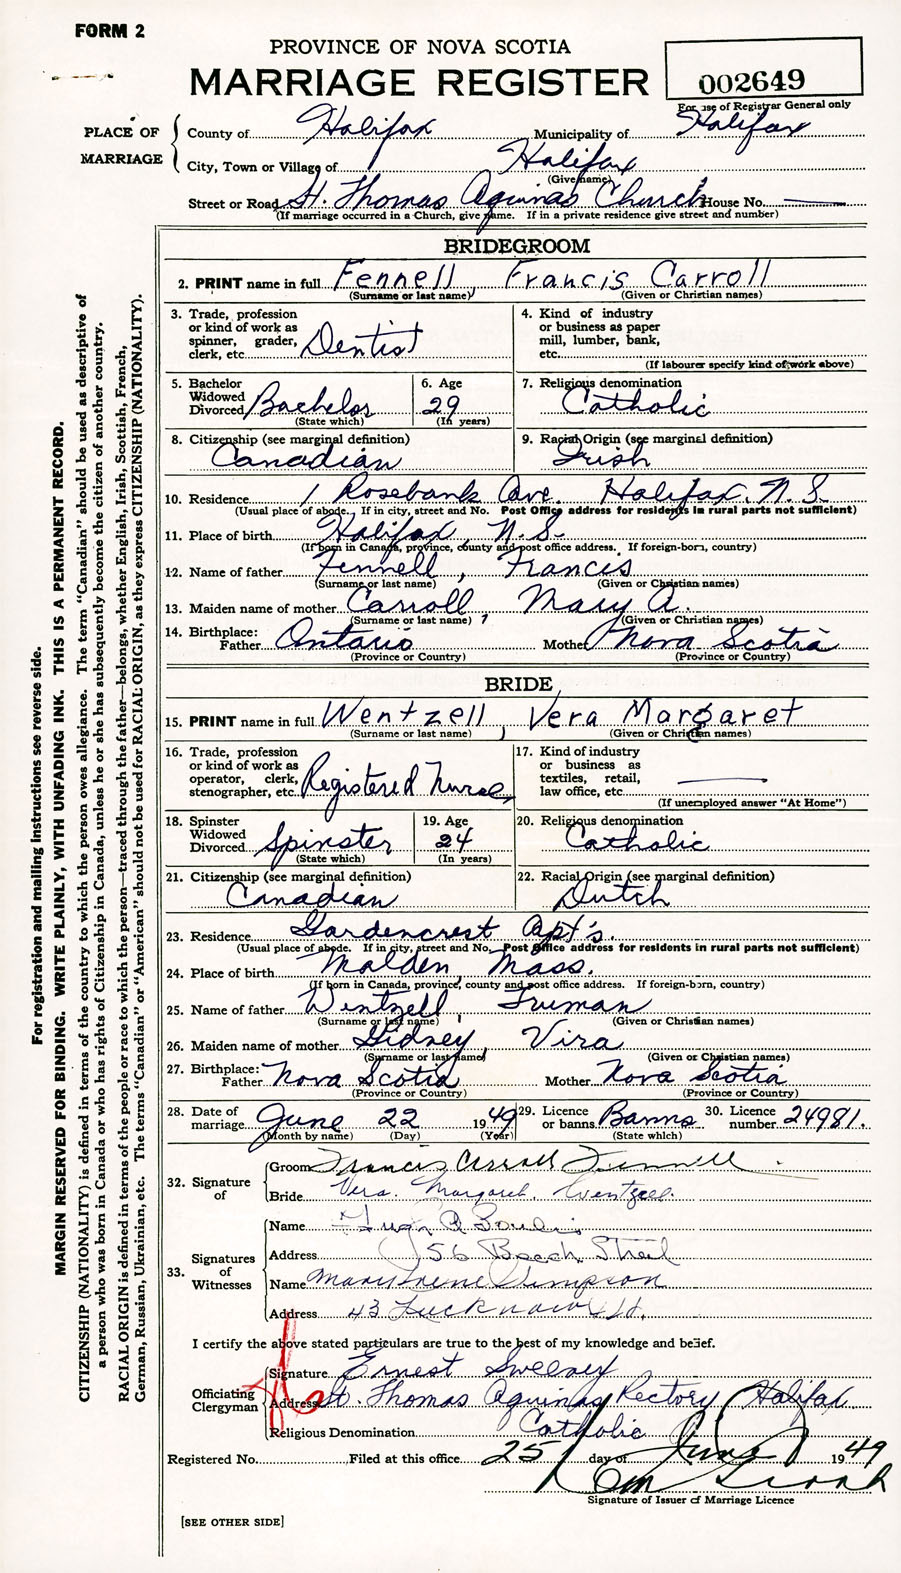 FORM 2
PROVINCE OF NOVA SCOTIA
MARRIAGE REGISTER
002649
For use of Registrar General only
PLACE OF MARRIAGE
County of Halifax Municipality of Halifax
City, Town or Village of Halifax
(Give name)
Street or Road St. Thomas Aquinas Church House No. —
(If marriage occurred in a Church, give name. If in a private residence give street and number)
BRIDEGROOM
2. PRINT name in full Fennell, Francis Carroll
(Surname or last name) (Given or Christian names)
3. Trade, profession or kind of work as spinner, grader, clerk, etc. Dentist
4. Kind of industry or business as paper mill, lumber, bank, etc.
(If labourer specify kind of work above)
5. Bachelor Widowed Divorced Bachelor
(State which)
6. Age 29
(In years)
7. Religious denomination Catholic
8. Citizenship (see marginal definition) Canadian
9. Racial Origin (see marginal definition) Irish
10. Residence 1 Rosebank Ave. Halifax. N.S.
(Usual place of abode. If in city, street and No. Post Office address for residents in rural parts not sufficient)
11. Place of birth Halifax, N.S.
(If born in Canada, province, county and post office address. If foreign-born, country)
12. Name of father Fennell, Francis
(Surname or last name) (Given or Christian names)
13. Maiden name of mother Carroll, Mary A.
(Surname or last name) (Given or Christian names)
14. Birthplace: Father Ontario Mother Nova Scotia
(Province or Country) (Province or Country)
BRIDE
15. PRINT name in full Wentzell, Vera Margaret
(Surname or last name) (Given or Christian names)
16. Trade, profession or kind of work as operator, clerk, stenographer, etc. Registered Nurse
17. Kind of industry or business as textiles, retail, law office, etc. —
(If unemployed answer "At Home")
18. Spinster Widowed Divorced Spinster
(State which)
19. Age 24
(In years)
20. Religious denomination Catholic
21. Citizenship (see marginal definition) Canadian
22. Racial Origin (see marginal definition) Dutch
23. Residence Gardencrest Apt's.
(Usual place of abode. If in city, street and No. Post Office address for residents in rural parts not sufficient)
24. Place of birth Malden, Mass.
(If born in Canada, province, county and post office address. If foreign-born, country)
25. Name of father Wentzell, Truman
(Surname or last name) (Given or Christian names)
26. Maiden name of mother Gidney, Vira
(Surname or last name) (Given or Christian names)
27. Birthplace: Father Nova Scotia Mother Nova Scotia
(Province or Country) (Province or Country)
28. Date of marriage June 22 1949
(Month by name) (Day) (Year)
29. Licence or banns Banns
(State which)
30. Licence number 24981.
32. Signature of
Groom Francis Carroll Fennell
Bride Vera Margaret Wentzell.
33. Signatures of Witnesses
Name Hugh
Address 56 Beech Street
Name Mary Irene Simpson
Address 43 Lucknow St.
I certify the above stated particulars are true to the best of my knowledge and belief.
Officiating Clergyman
Signature Ernest Sweeney
Address St. Thomas Aquinas Rectory Halifax
Religious Denomination Catholic
Registered No. Filed at this office 25 day of June 1949
Signature of Issuer of Marriage Licence
[SEE OTHER SIDE]
For registration and mailing instructions see reverse side.
MARGIN RESERVED FOR BINDING. WRITE PLAINLY, WITH UNFADING INK. THIS IS A PERMANENT RECORD.
CITIZENSHIP (NATIONALITY) is defined in terms of the country to which the person owes allegiance. The term "Canadian" should be used as descriptive of
a person who was born in Canada or who has rights of Citizenship in Canada, unless he or she has subsequently become the citizen of another country.
RACIAL ORIGIN is defined in terms of the people or race to which the person—traced through the father—belongs, whether English, Irish, Scottish, French,
German, Russian, Ukrainian, etc. The terms "Canadian" or "American" should not be used for RACIAL ORIGIN, as they express CITIZENSHIP (NATIONALITY).